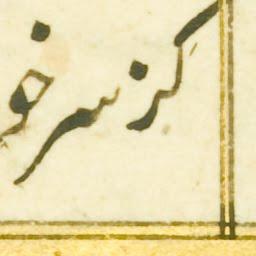 کز سر خو